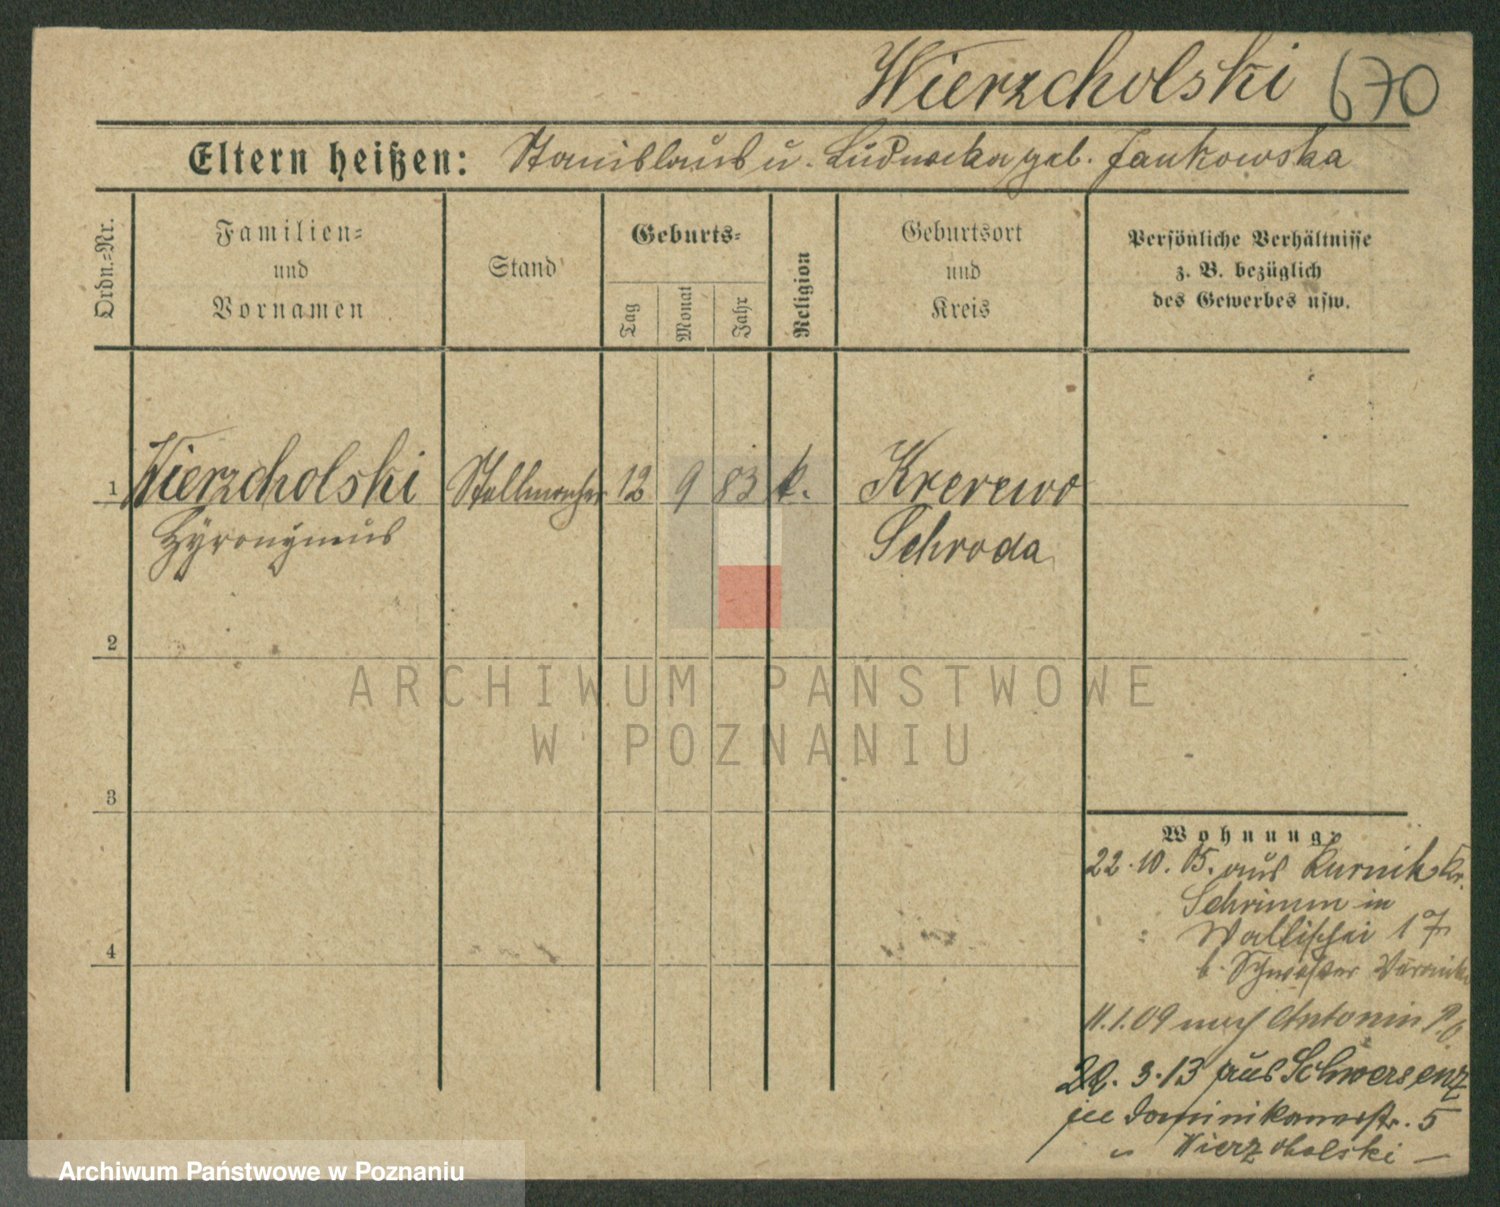 Wierzcholski 670
Eltern heißen: Stanislaus u. Ludowika geb. Jankowska
Ordn.=Nr.
Familien=
und
Vornamen
Stand
Geburts=
Tag
Monat
Jahr
Religion
Geburtsort
und
Kreis
Persönliche Verhältnisse
z. B. bezüglich
des Gewerbes usw.
1 Wierzcholski Stellmacher 12 9 83 k. Krerewo
Hyronymus Schroda
2
3
4
Wohnung:
22.10.05. aus Kurnik Kr.
Schrimm in
Wallischei 17
b. Schwester Veronika
11.1.09 nach Antonin
22.3.13 aus Schwersenz
Dominikanerstr. 5
Wierzcholski
ARCHIWUM PAŃSTWOWE
W POZNANIU
Archiwum Państwowe w Poznaniu